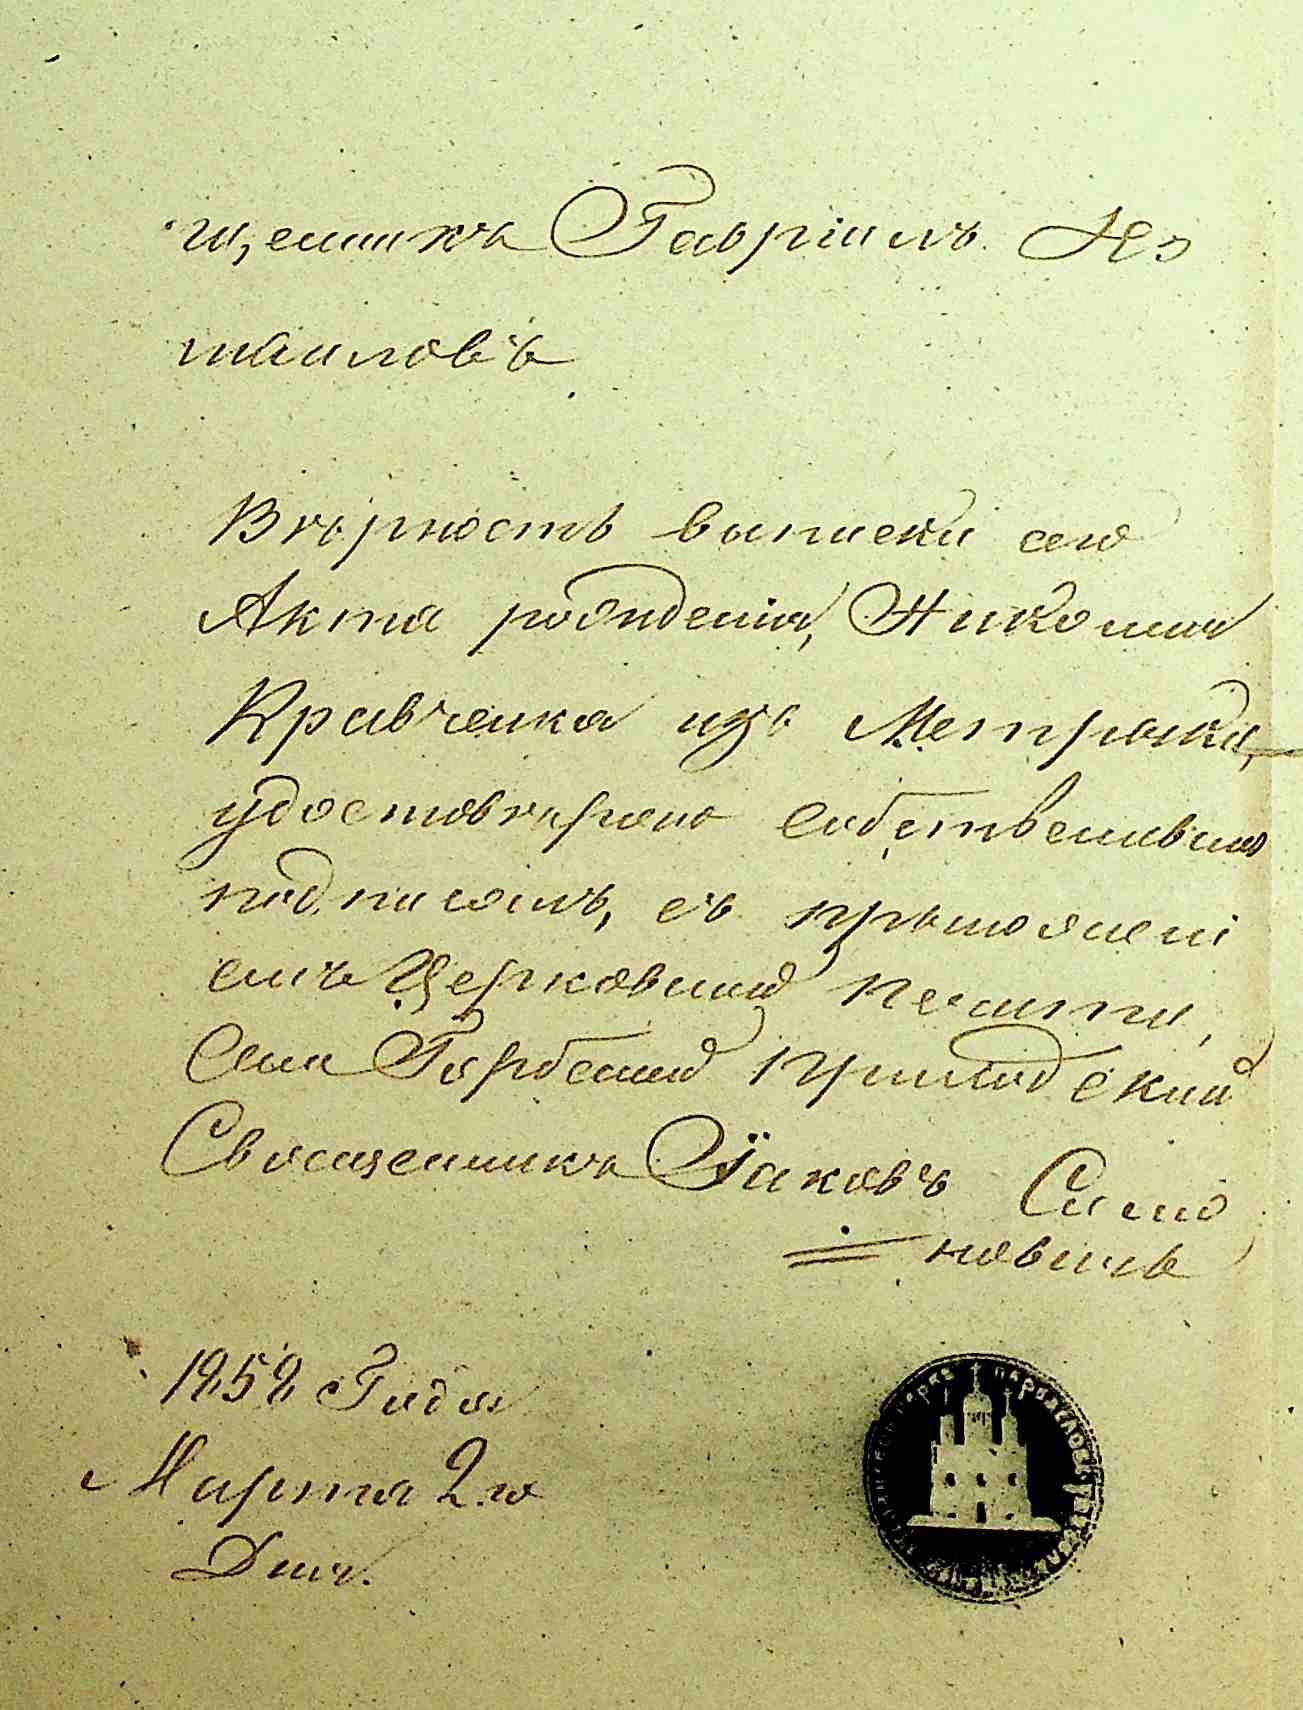 щенникъ Гавріилъ Из
маиловъ
Вѣрность выписки сего
Акта рожденія, Николая
Кравченка изъ Метрыки,
удостовѣряю собственною
подписомъ, съ прыложені
емъ Церковной печати,
Села Горбеной прыходскій
Священникъ Іаковъ Симо
новичъ
1858 Года
Марта 2го
Дня.